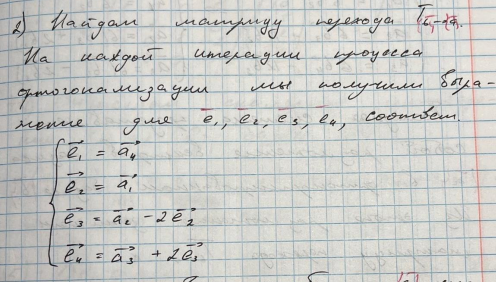 в) Найдём матрицу перехода T
На каждой итерации процесса
ортогонализации мы получили выра-
жение для e₁, e₂, e₃, e₄, соответ.
e₁ = a₄
e₂ = a₁
e₃ = a₂ - 2e₂
e₄ = a₃ + 2e₃